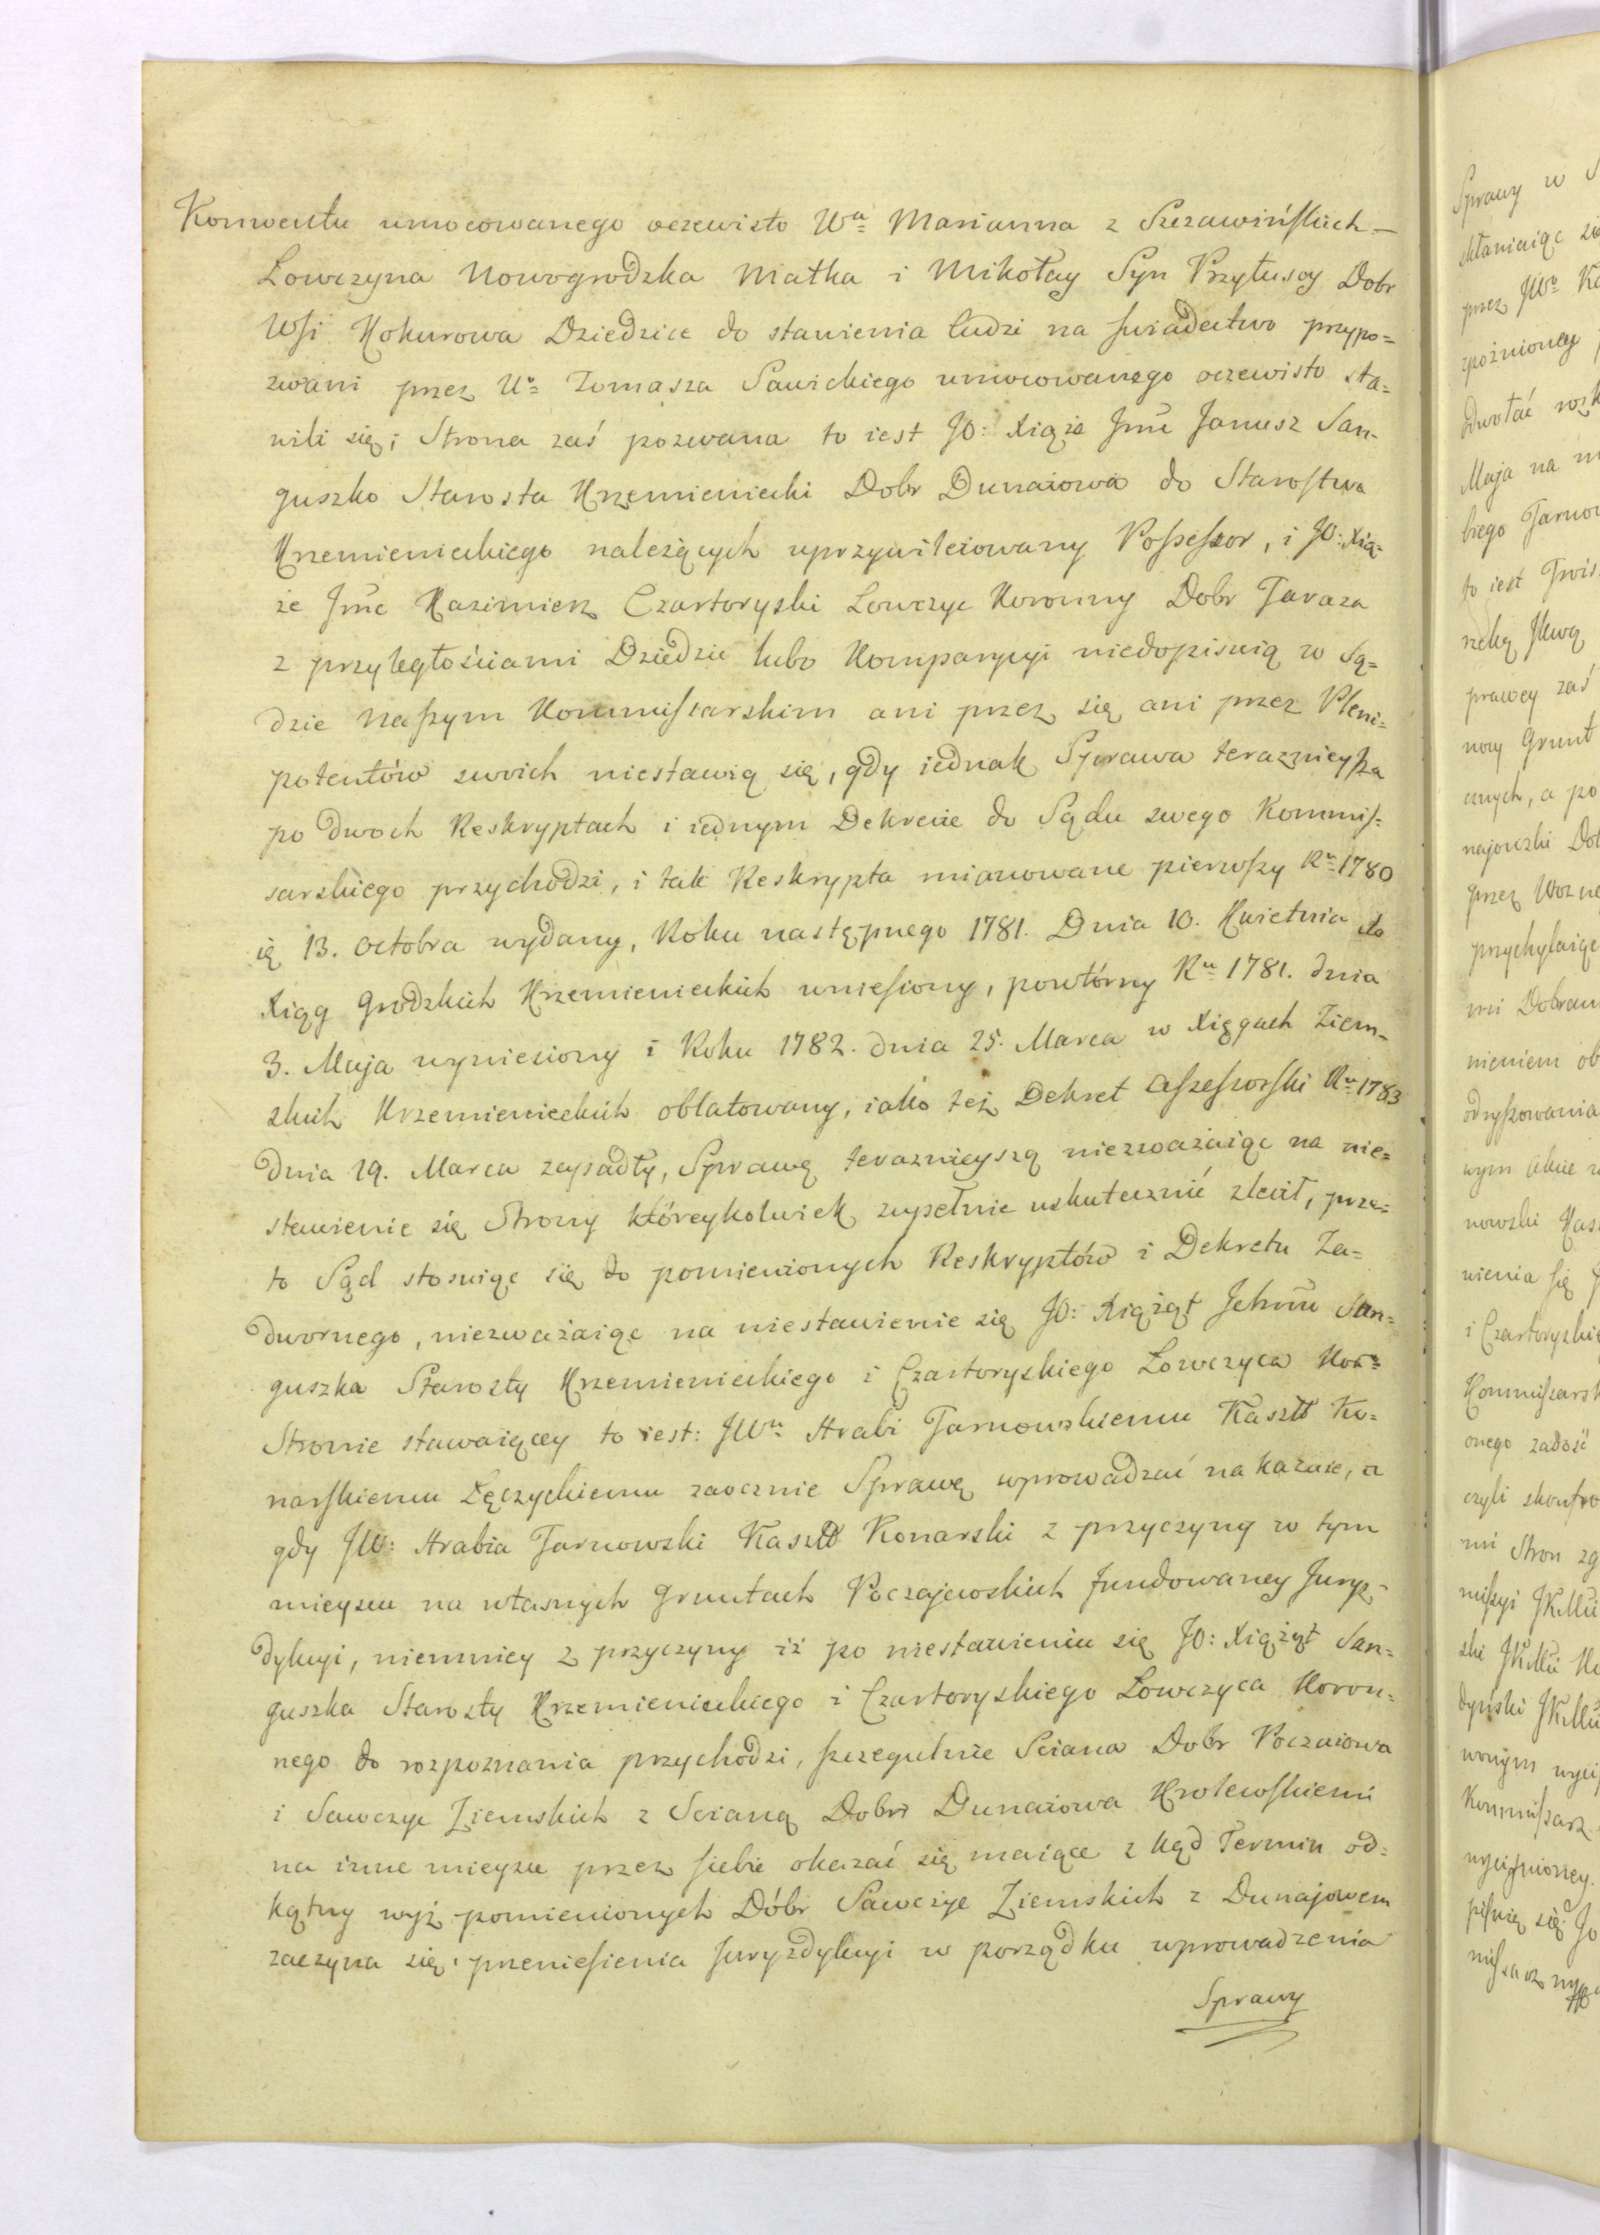 Konwentu umocowanego oczewisto Wa Marianna z Szczawińskich
Lowczyna Nowogrodzka Matka i Mikołay Syn Przyłuscy Dobr
Wsi Kokurowa Dziedzice do stawienia ludzi na swiadectwo przypo=
zwani przez Uo Tomasza Sawickiego umocowanego oczewisto sta=
wili się; Strona zaś pozwana to iest JO: Xiąże Jmć Janusz San-
guszko Starosta Krzemieniecki Dobr Dunaiowa do Starostwa
Krzemienieckiego należących uprzywileiowany Possessor, i JO: Xią-
że Jmć Kazimierz Czartoryski Lowczyc Koronny Dobr Taraza
z przyległościami Dziedzic lubo Komparycyi niedopisuią w Są=
dzie Naszym Kommissarskim ani przez się ani przez Pleni=
potentów swoich niestawią się, gdy iednak Sprawa teraznieysza
po dwoch Reskryptach i iednym Dekrecie do Sądu swego Kommis=
sarskiego przychodzi, i tak Reskrypta mianowane pierwszy Ru 1780
ię 13. Octobra wydany, Roku następnego 1781. Dnia 10. Kwietnia do
Xiąg Grodzkich Krzemienieckich wniesiony, powtórny Ru 1781. dnia
3. Maja wyniesiony i Roku 1782. dnia 25. Marca w Xięgach Ziem-
skich Krzemienieckich oblatowany, iako też Dekret Assessorski Ru 1783
Dnia 19. Marca zapadły, Sprawę teraznieyszą niezważaiąc na nie=
stawienie się Strony któreykolwiek zupełnie uskutecznić zlecił, prze=
to Sąd stosuiąc się do pomienionych Reskryptów i Dekretu Za=
dwornego, niezważaiąc na niestawienie się JO: Xiążąt Ichmć San=
guszka Starosty Krzemienieckiego i Czartoryskiego Lowczyca Kor:
Stronie stawaiącey to iest: JWu Hrabi Tarnowskiemu Kasztt Ko=
narskiemu Łęczyckiemu zaocznie Sprawę wprowadzać nakazuie, a
gdy JW: Hrabia Tarnowski Kasztt Konarski z przyczyny w tym
mieyscu na własnych Gruntach Poczajowskich fundowaney Juryz-
dykcyi, niemniey z przyczyny iż po niestawieniu się JO: Xiążąt San=
guszka Starosty Krzemienieckiego i Czartoryskiego Lowczyca Koron=
nego do rozpoznania przychodzi, szczegulnie Sciana Dobr Poczaiowa
i Sawczyc Ziemskich z Scianą Dobr Dunaiowa Krolewskiemi
na inne mieysce przez siebie okazać się maiące z kąd Termin od=
kątny wyż pomienionych Dóbr Sawczyc Ziemskich z Dunajowem
zaczyna się, przeniesienia Juryzdykcyi w porządku wprowadzenia
Sprawy